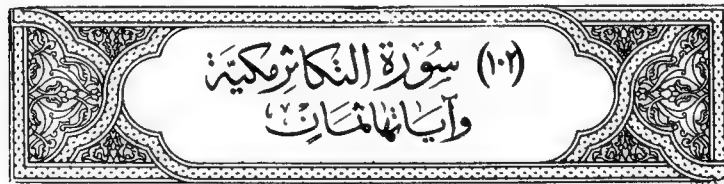 (١٠٢) سُورَة التكاثر مكيَّة
وآيَاتها ثمَان